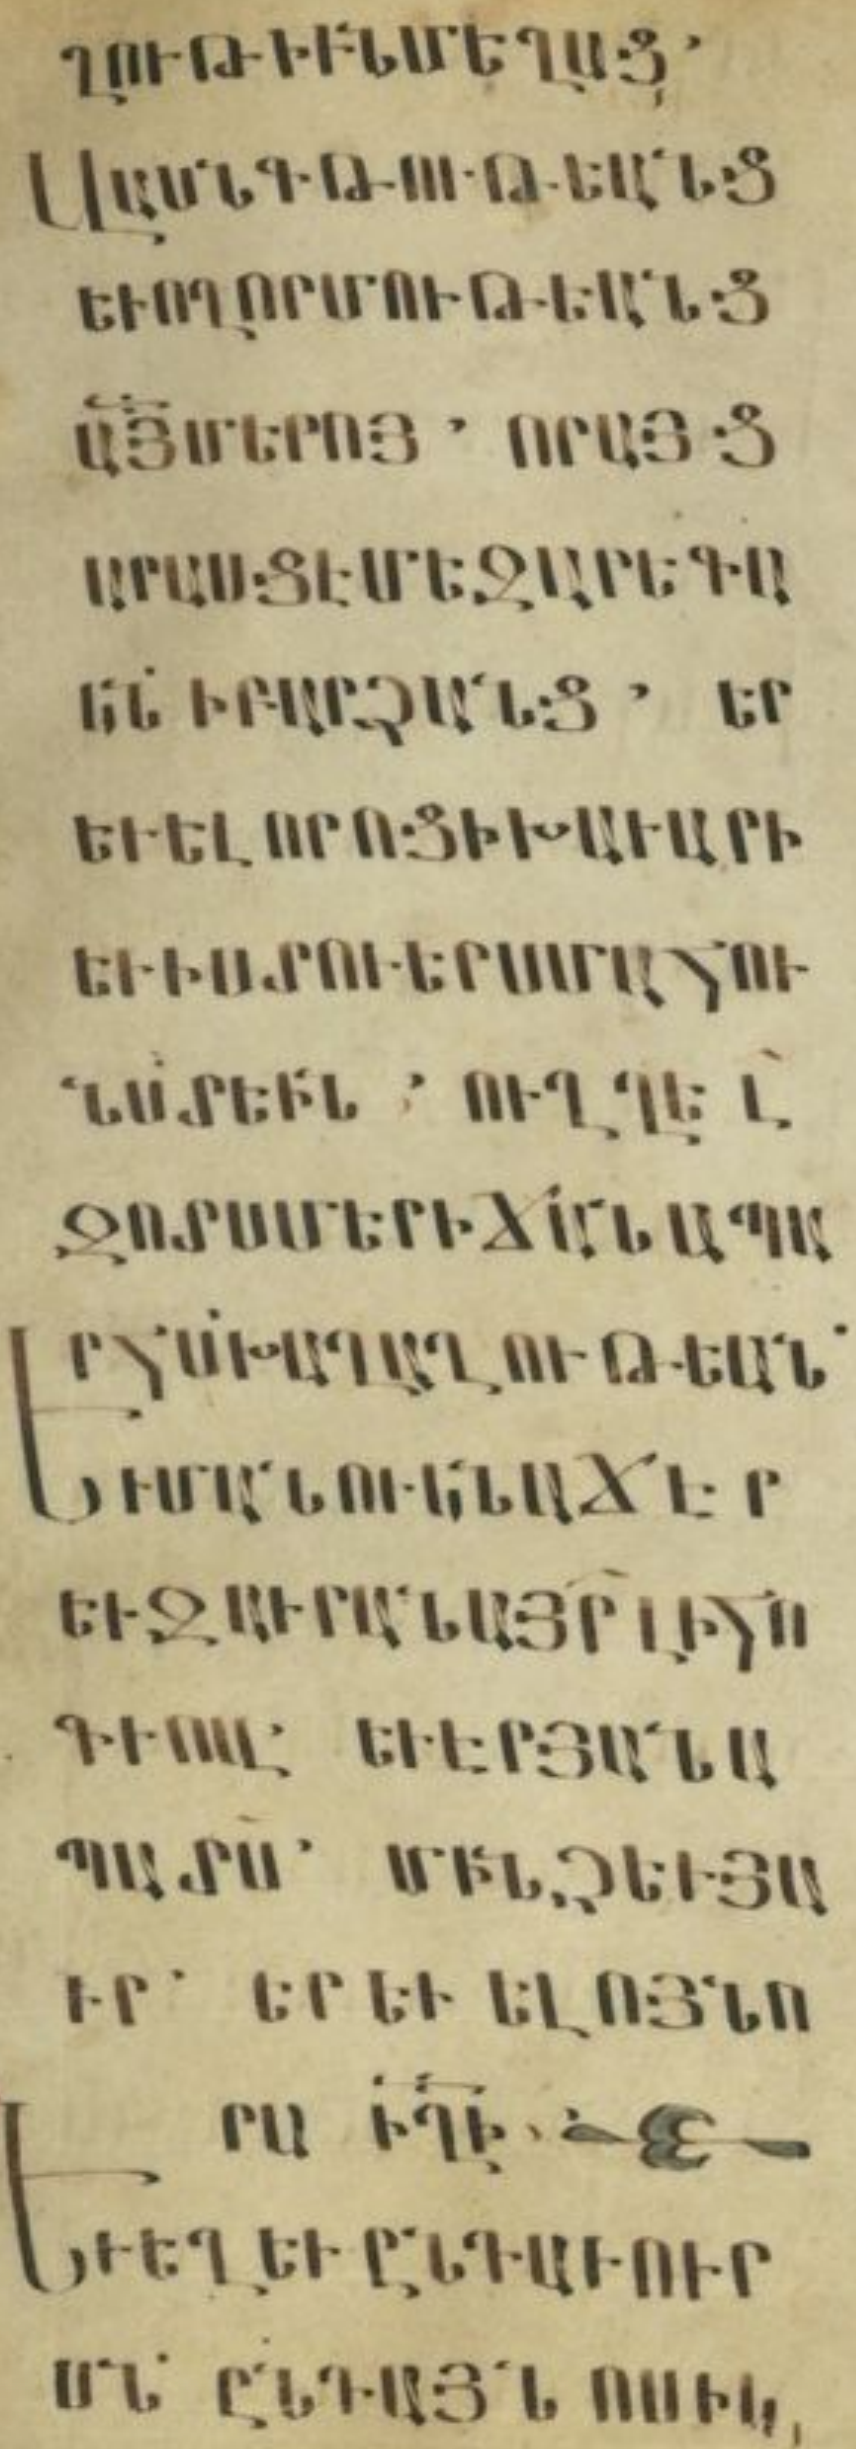 ՂՈՒԹԻՒՆ ՄԵՂԱՑ՚
ՎԱՍՆ ԳԹՈՒԹԵԱՆՑ
ԵՒ ՈՂՈՐՄՈՒԹԵԱՆՑ
ԱՅ ՄԵՐՈՅ՚ ՈՐ ԱՅՑ
ԱՐԱՍՑԷ ՄԵԶ ԱՐԵԳԱ
ԿՆ Ի ԲԱՐՁԱՆՑ՚ ԵՐ
ԵՒԵԼ ՈՐՈՑ Ի ԽԱՒԱՐԻ
ԵՒ Ի ՍՏՈՒԵՐՍ ՄԱՀՈՒ
ՆՍՏԵԻՆ՚ ՈՒՂՂԵԼ
ԶՈՏՍ ՄԵՐ Ի ՃԱՆԱՊԱ
ՐՀՍ ԽԱՂԱՂՈՒԹԵԱՆ՛
ԵՒ ՄԱՆՈՒԿՆ ԱՃԷՐ
ԵՒ ԶԱՒՐԱՆԱՅՐ ԼԻ ՀՈ
ԳՒՈՎ՝ ԵՒ ԷՐ ՅԱՆԱ
ՊԱՏՍ՚ ՄԻՆՉԵՒ ՅԱ
ՒՐ՝ ԵՐԵՒԵԼՈՅ ՆՈ
ՐԱ ԻՂԻ։
ԵՒ ԵՂԵՒ ԸՆԴ ԱՒՈՒՐ
ՍՆ՝ ԸՆԴ ԱՅՆՈՍԻԿ